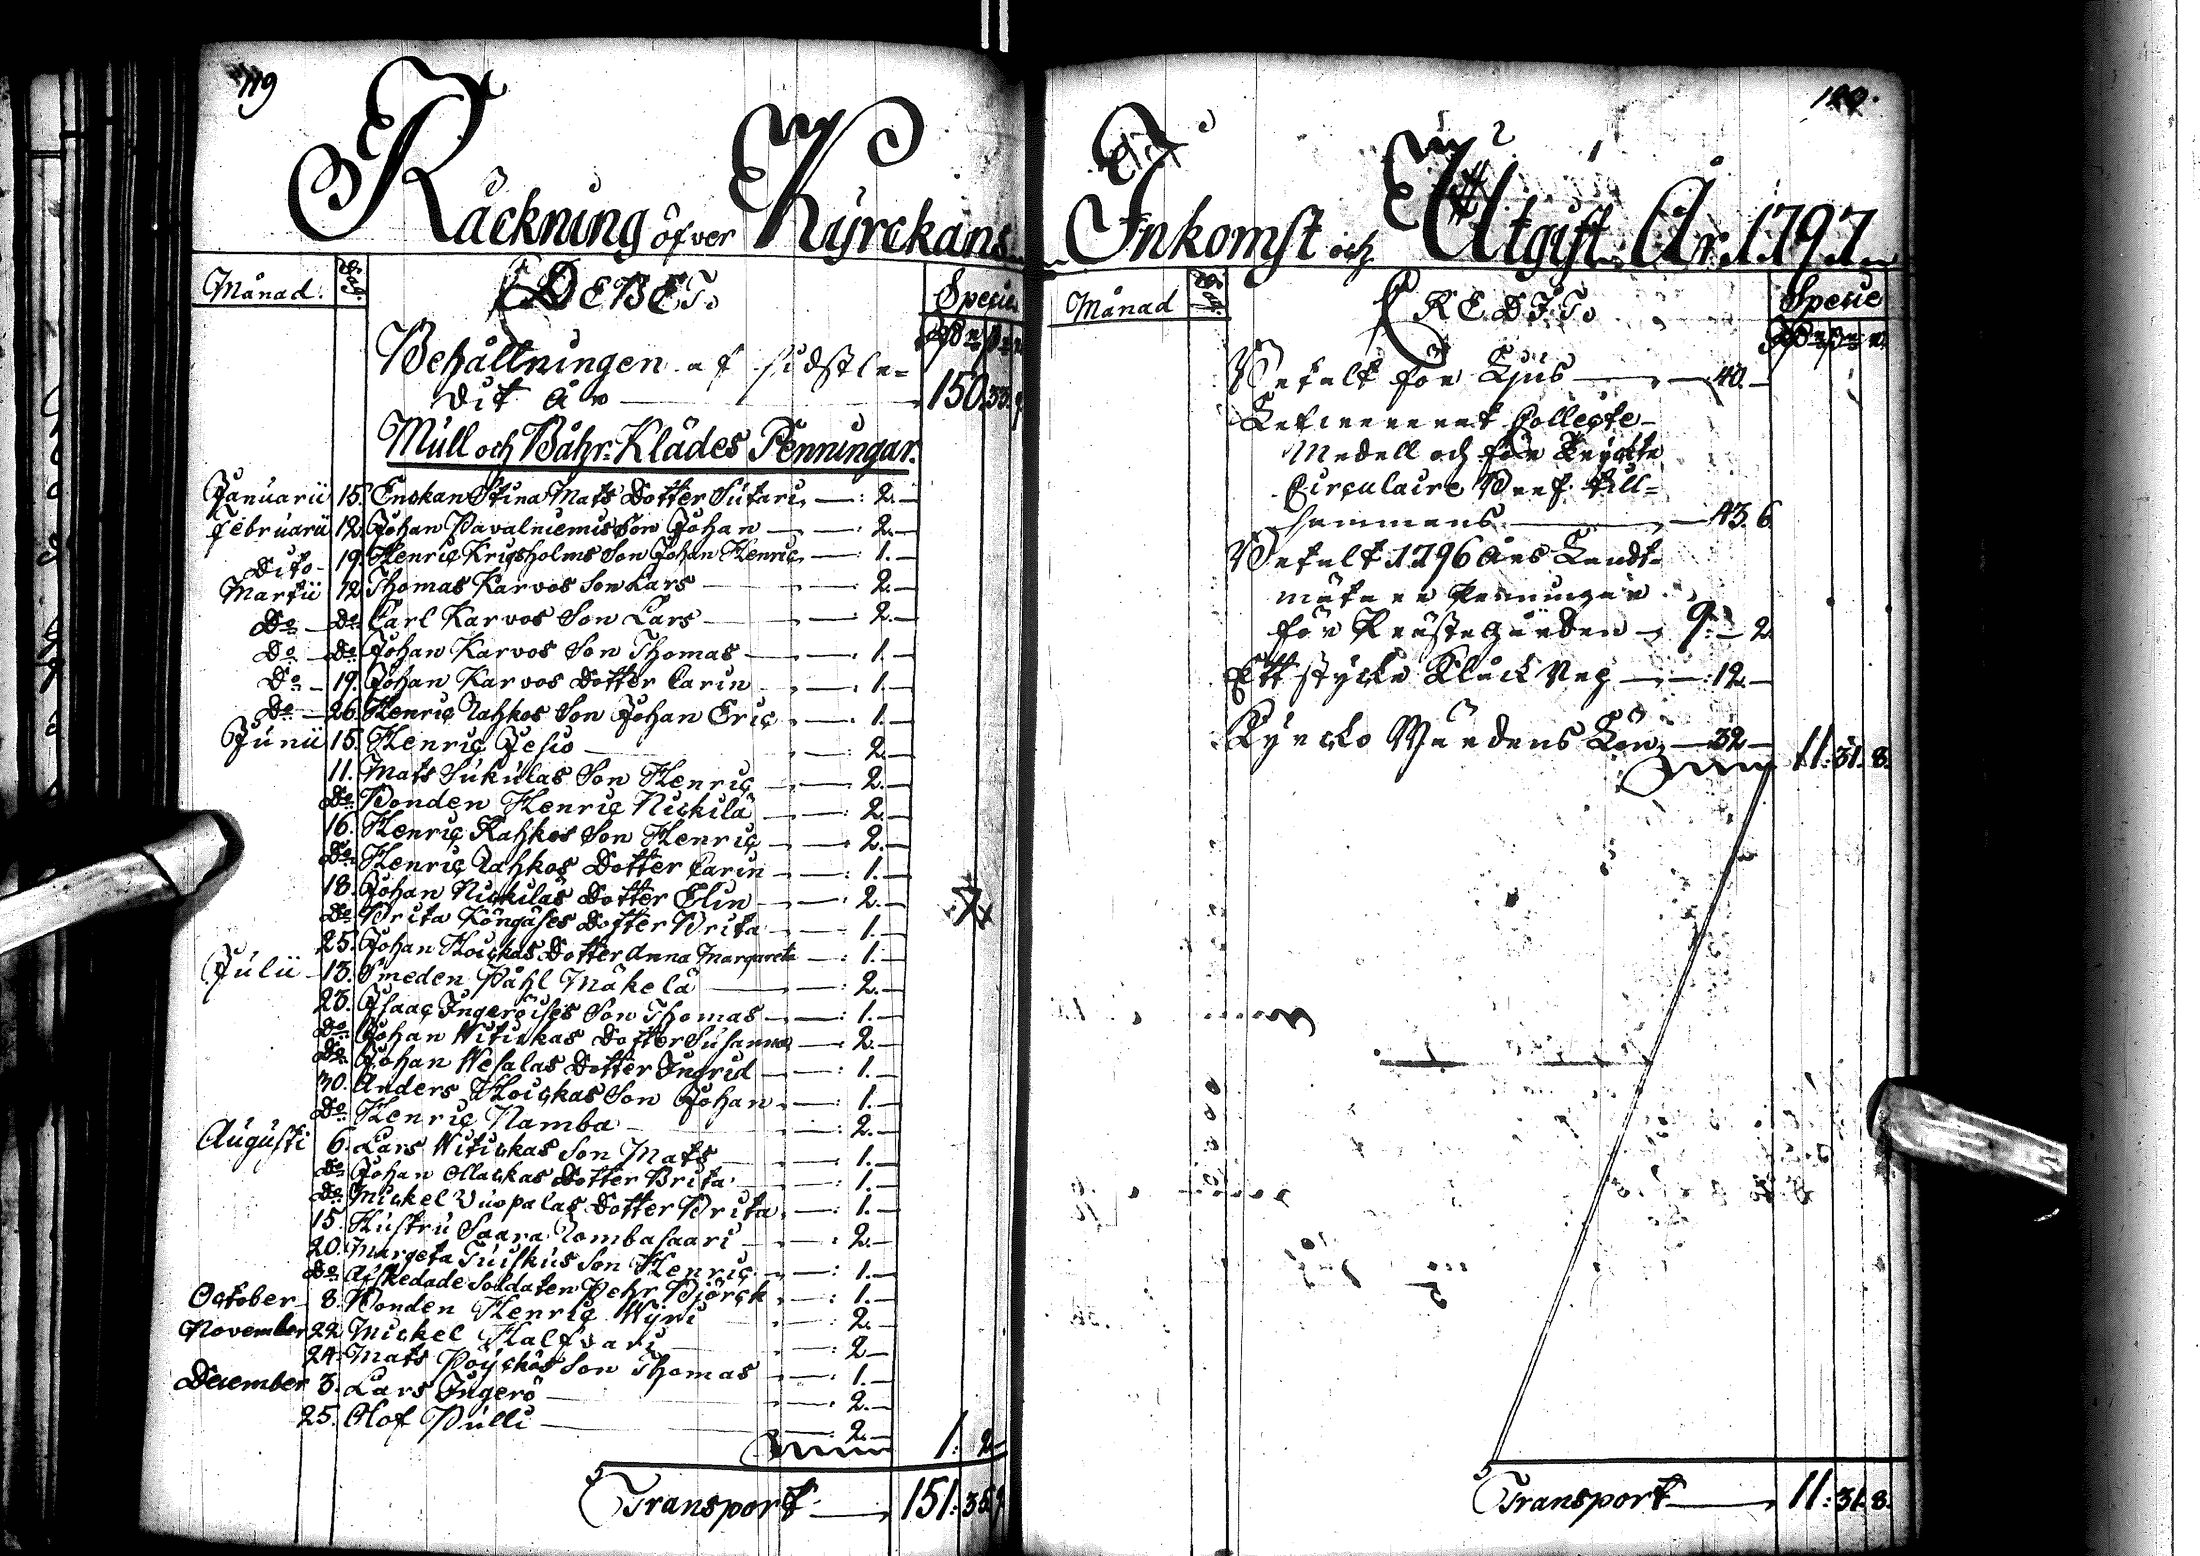 119
Räckning öfver Kyrckans
Månad. Dag. DEBET. Specie
Rd s r
Behållningen af sidstle-
dit år 150. 33. 9
Mull och Båhr-Klädes Penningar.
Januarii 15. Enckan Stina Mats Dotter Sutari, — : 2. —
Februarii 12. Johan Pavalniemis Son Johan — : 2. —
Dito 19. Henric Krigsholms Son Johan Henric — : 1. —
Martii 12. Thomas Karvos Son Lars — : 2. —
Do Do Carl Karvos Son Lars — : 2. —
Do Do Johan Karvos Son Thomas — : 1. —
Do 19. Johan Karvos Dotter Carin — : 1. —
Do 26. Henric Rahkos Son Johan Eric — : 1. —
Junii 15. Henric Jesio — : 2. —
11. Mats Sukulas Son Henric — : 2. —
Do Bonden Henric Nickilä — : 2. —
16. Henric Rahkos Son Henric — : 2. —
Do Henric Rahkos Dotter Carin — : 1. —
18. Johan Nickilas Dotter Elin — : 2. —
Do Brita Köngäses Dotter Brita — : 1. —
25. Johan Hoickas Dotter Anna Margareta — : 1. —
Julii 13. Smeden Påhl Mäkelä — : 2. —
23. Isaac Ingeröises Son Thomas — : 1. —
Do Johan Witickas Dotter Susanna — : 2. —
Do Johan Wesalas Dotter Ingrid — : 1. —
30. Anders Hoickas Son Johan — : 1. —
Do Henric Namba — : 2. —
Augusti 6. Lars Witickas Son Mats — : 1. —
Do Johan Ollackas Dotter Brita — : 1. —
Do Mickel Vuopalas Dotter Brita — : 1. —
15. Hustru Saara Rombasaari — : 2. —
20. Margeta Tuiskus Son Henric — : 1. —
Do Afskedade Soldaten Pehr Björck — : 1. —
October 8. Bonden Henric Wyri — : 2. —
November 22. Mickel Halfvari — : 2 —
24. Mats Pöyckös Son Thomas — : 1. —
December 3. Lars Ingerö — : 2. —
25. Olof Pulli — : 2. —
Summa 1: 2 —
Transport — 151: 35. 9
Inkomst och Utgift År 1797.
Månad Dag. CREDIT. Specie
Rd s r
Betalt för Ljus — 40. —
Collecte-
Medell och för Tryckta
Circulaire Bref till-
sammans — 43. 6
Betalt 1796 Års Landt-
mätare Penningar
för Prästegården — 9: — 2.
Ett stycke Klåck Rep — 12. —
Kyrcko Wärdens Lön — 32 —
Summa 11: 31. 8.
Transport — 11: 31. 8.